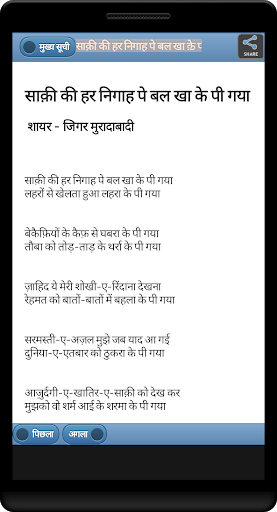 मुख्य सूची
साक़ी की हर निगाह पे बल खा के प
SHARE
साक़ी की हर निगाह पे बल खा के पी गया
शायर - जिगर मुरादाबादी
साक़ी की हर निगाह पे बल खा के पी गया
लहरों से खेलता हुआ लहरा के पी गया
बेकैफ़ियों के कैफ़ से घबरा के पी गया
तौबा को तोड़-ताड़ के थर्रा के पी गया
ज़ाहिद ये मेरी शोखी-ए-रिंदाना देखना
रेहमत को बातों-बातों में बहला के पी गया
सरमस्ती-ए-अज़ल मुझे जब याद आ गई
दुनिया-ए-एतबार को ठुकरा के पी गया
आज़ुर्दगी-ए-खातिर-ए-साक़ी को देख कर
मुझको वो शर्म आई के शरमा के पी गया
पिछला
अगला